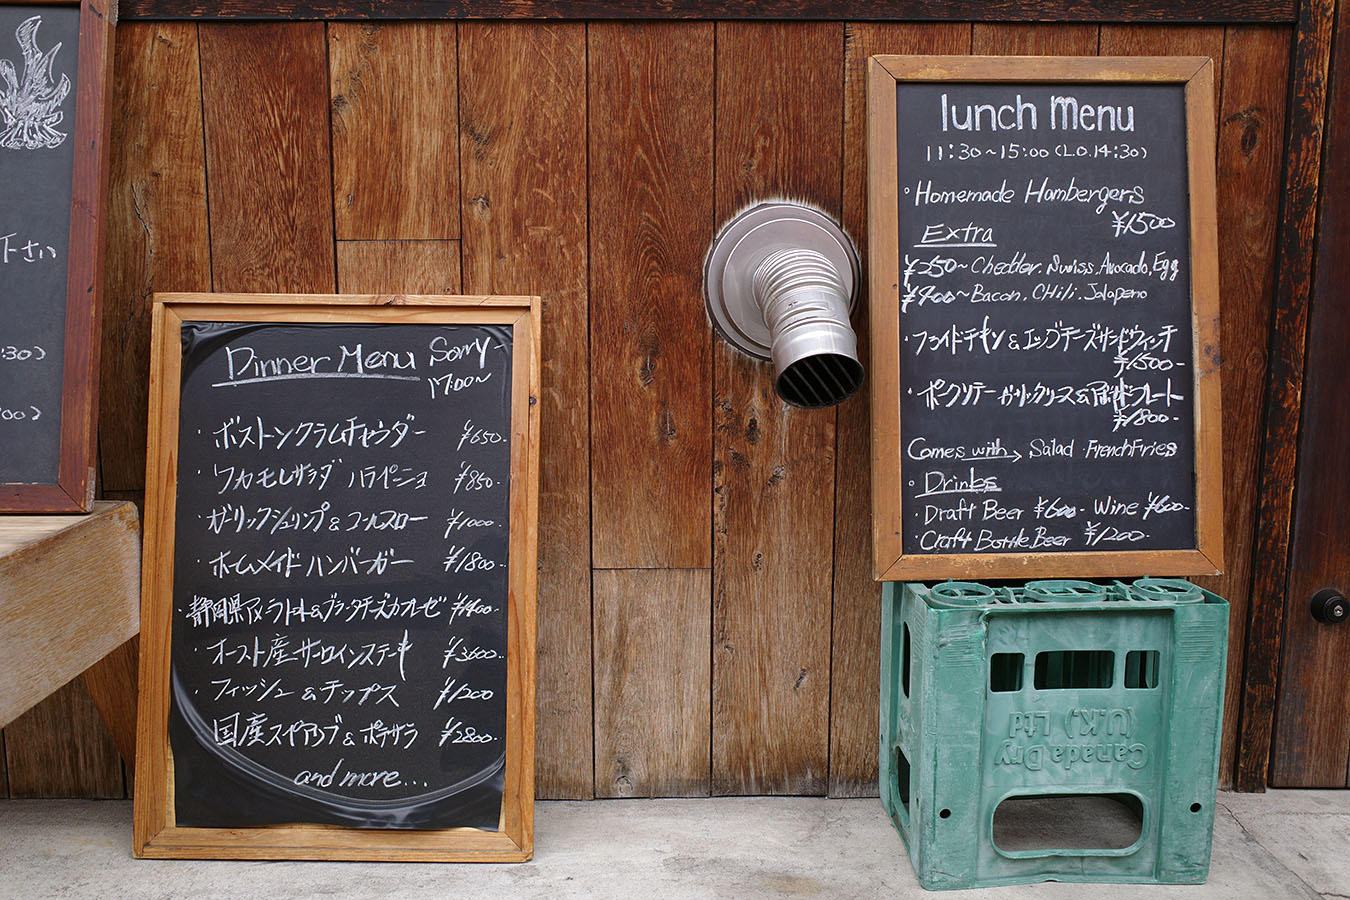 下さい
:30)
:00)
Dinner Menu Sorry
17:00~
・ボストンクラムチャウダー ¥650-
・ワカモレサラダ ハラペーニョ ¥850-
・ガーリックシュリンプ&コールスロー ¥1000-
・ホームメイドハンバーガー ¥1800-
・静岡県 ¥1400-
・オースト産サーロインステーキ ¥3600-
・フィッシュ&チップス ¥1200
・国産スペアリブ&ポテサラ ¥2800-
and more...
lunch Menu
11:30~15:00(L.O.14:30)
・Homemade Hambergers
¥1500
Extra
¥250~Cheddar.Swiss.Avocado,Egg
¥400~Bacon.CHili.Jalapeno
・フライドチキン&エッグチーズサンドウィッチ
¥1500-
・ポークソテーガーリックソース&プレート
¥1800-
Comes with→Salad・French Fries
・Drinks
・Draft Beer ¥600-Wine ¥600-
・Craft Bottle Beer ¥1200-
Canada Dry
(U.K.) Ltd